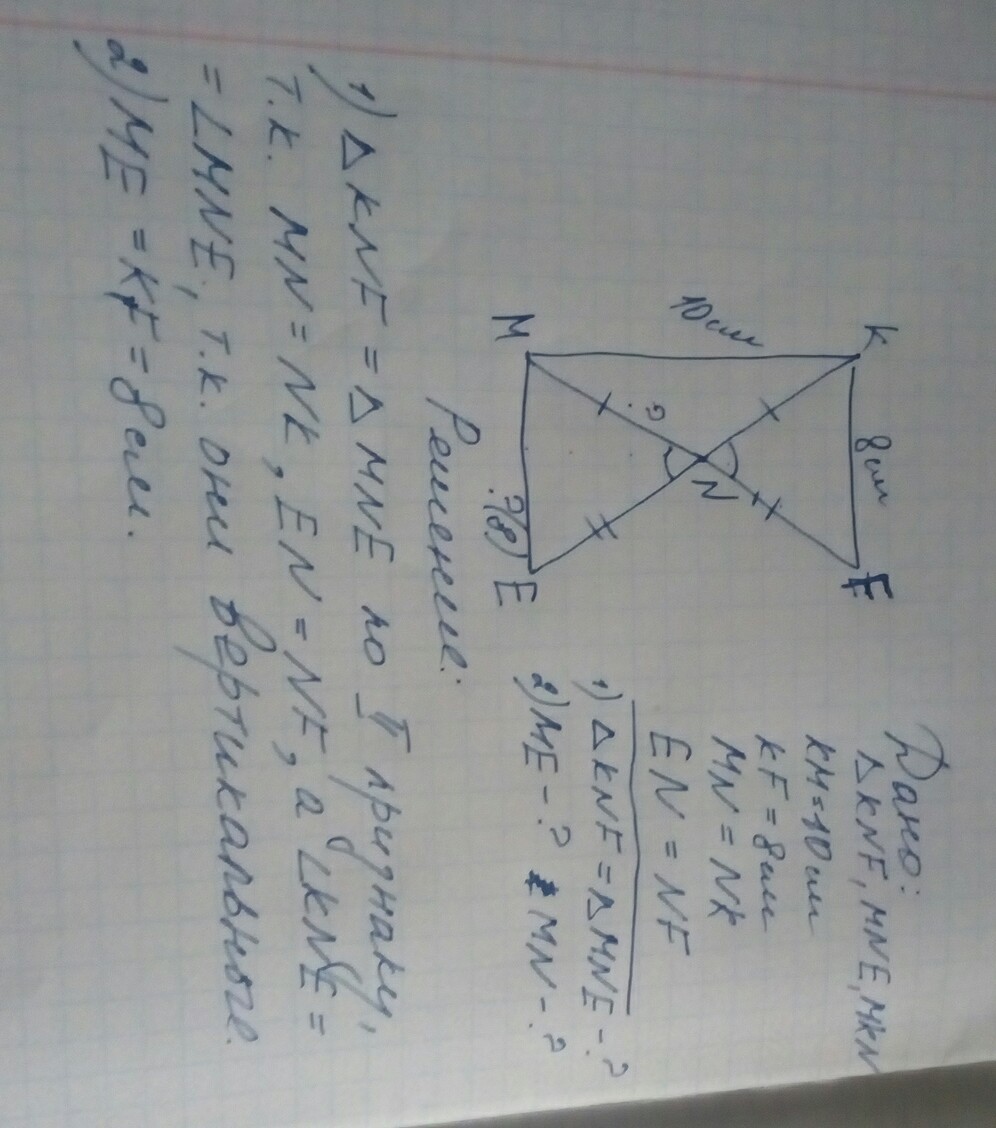 Дано:
△KNF, MNE, MKN
KM=10см
KF=8см
MN=NK
EN=NF
1) △KNF=△MNE-?
2) ME-? MN-?
K
10см
M
8см
?
N
F
?(8)
E
Решение:
1) △KNF=△MNE по I признаку,
т.к. MN=NK, EN=NF, а ∠KNF=
=∠MNE, т.к. они вертикальные.
2) ME=KF=8см.